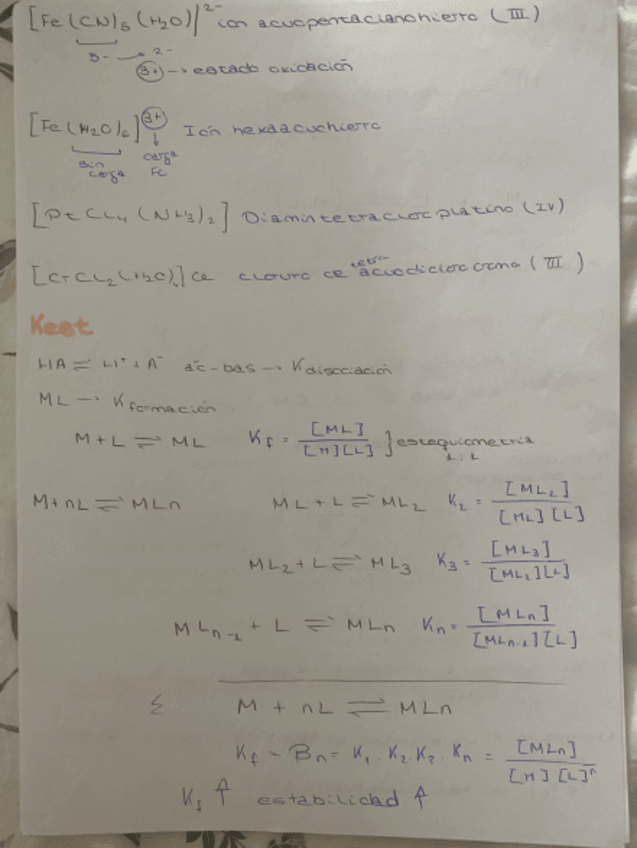 [Fe(CN)5(H2O)]2- ion acuopentacianohierro (III)
5- → 2-
3+ → estado oxidación
[Fe(H2O)6]3+ Ión hexaacuohierro
sin carga carga Fe
[PtCl4(NH3)2] Diamintetracloroplatino (IV)
[CrCl2(H2O)4]Cl cloruro de tetraacuodiclorocromo (III)
Kest
HA ⇌ H+ + A- ác-bas → Kdisociación
ML → Kformación
M + L ⇌ ML Kf = [ML] / [M][L] } estequiometría 1:1
M + nL ⇌ MLn ML + L ⇌ ML2 K2 = [ML2] / [ML][L]
ML2 + L ⇌ ML3 K3 = [ML3] / [ML2][L]
MLn-1 + L ⇌ MLn Kn = [MLn] / [MLn-1][L]
Σ M + nL ⇌ MLn
Kf - Bn = K1 · K2 · K3 · Kn = [MLn] / [M][L]n
Kf ↑ estabilidad ↑